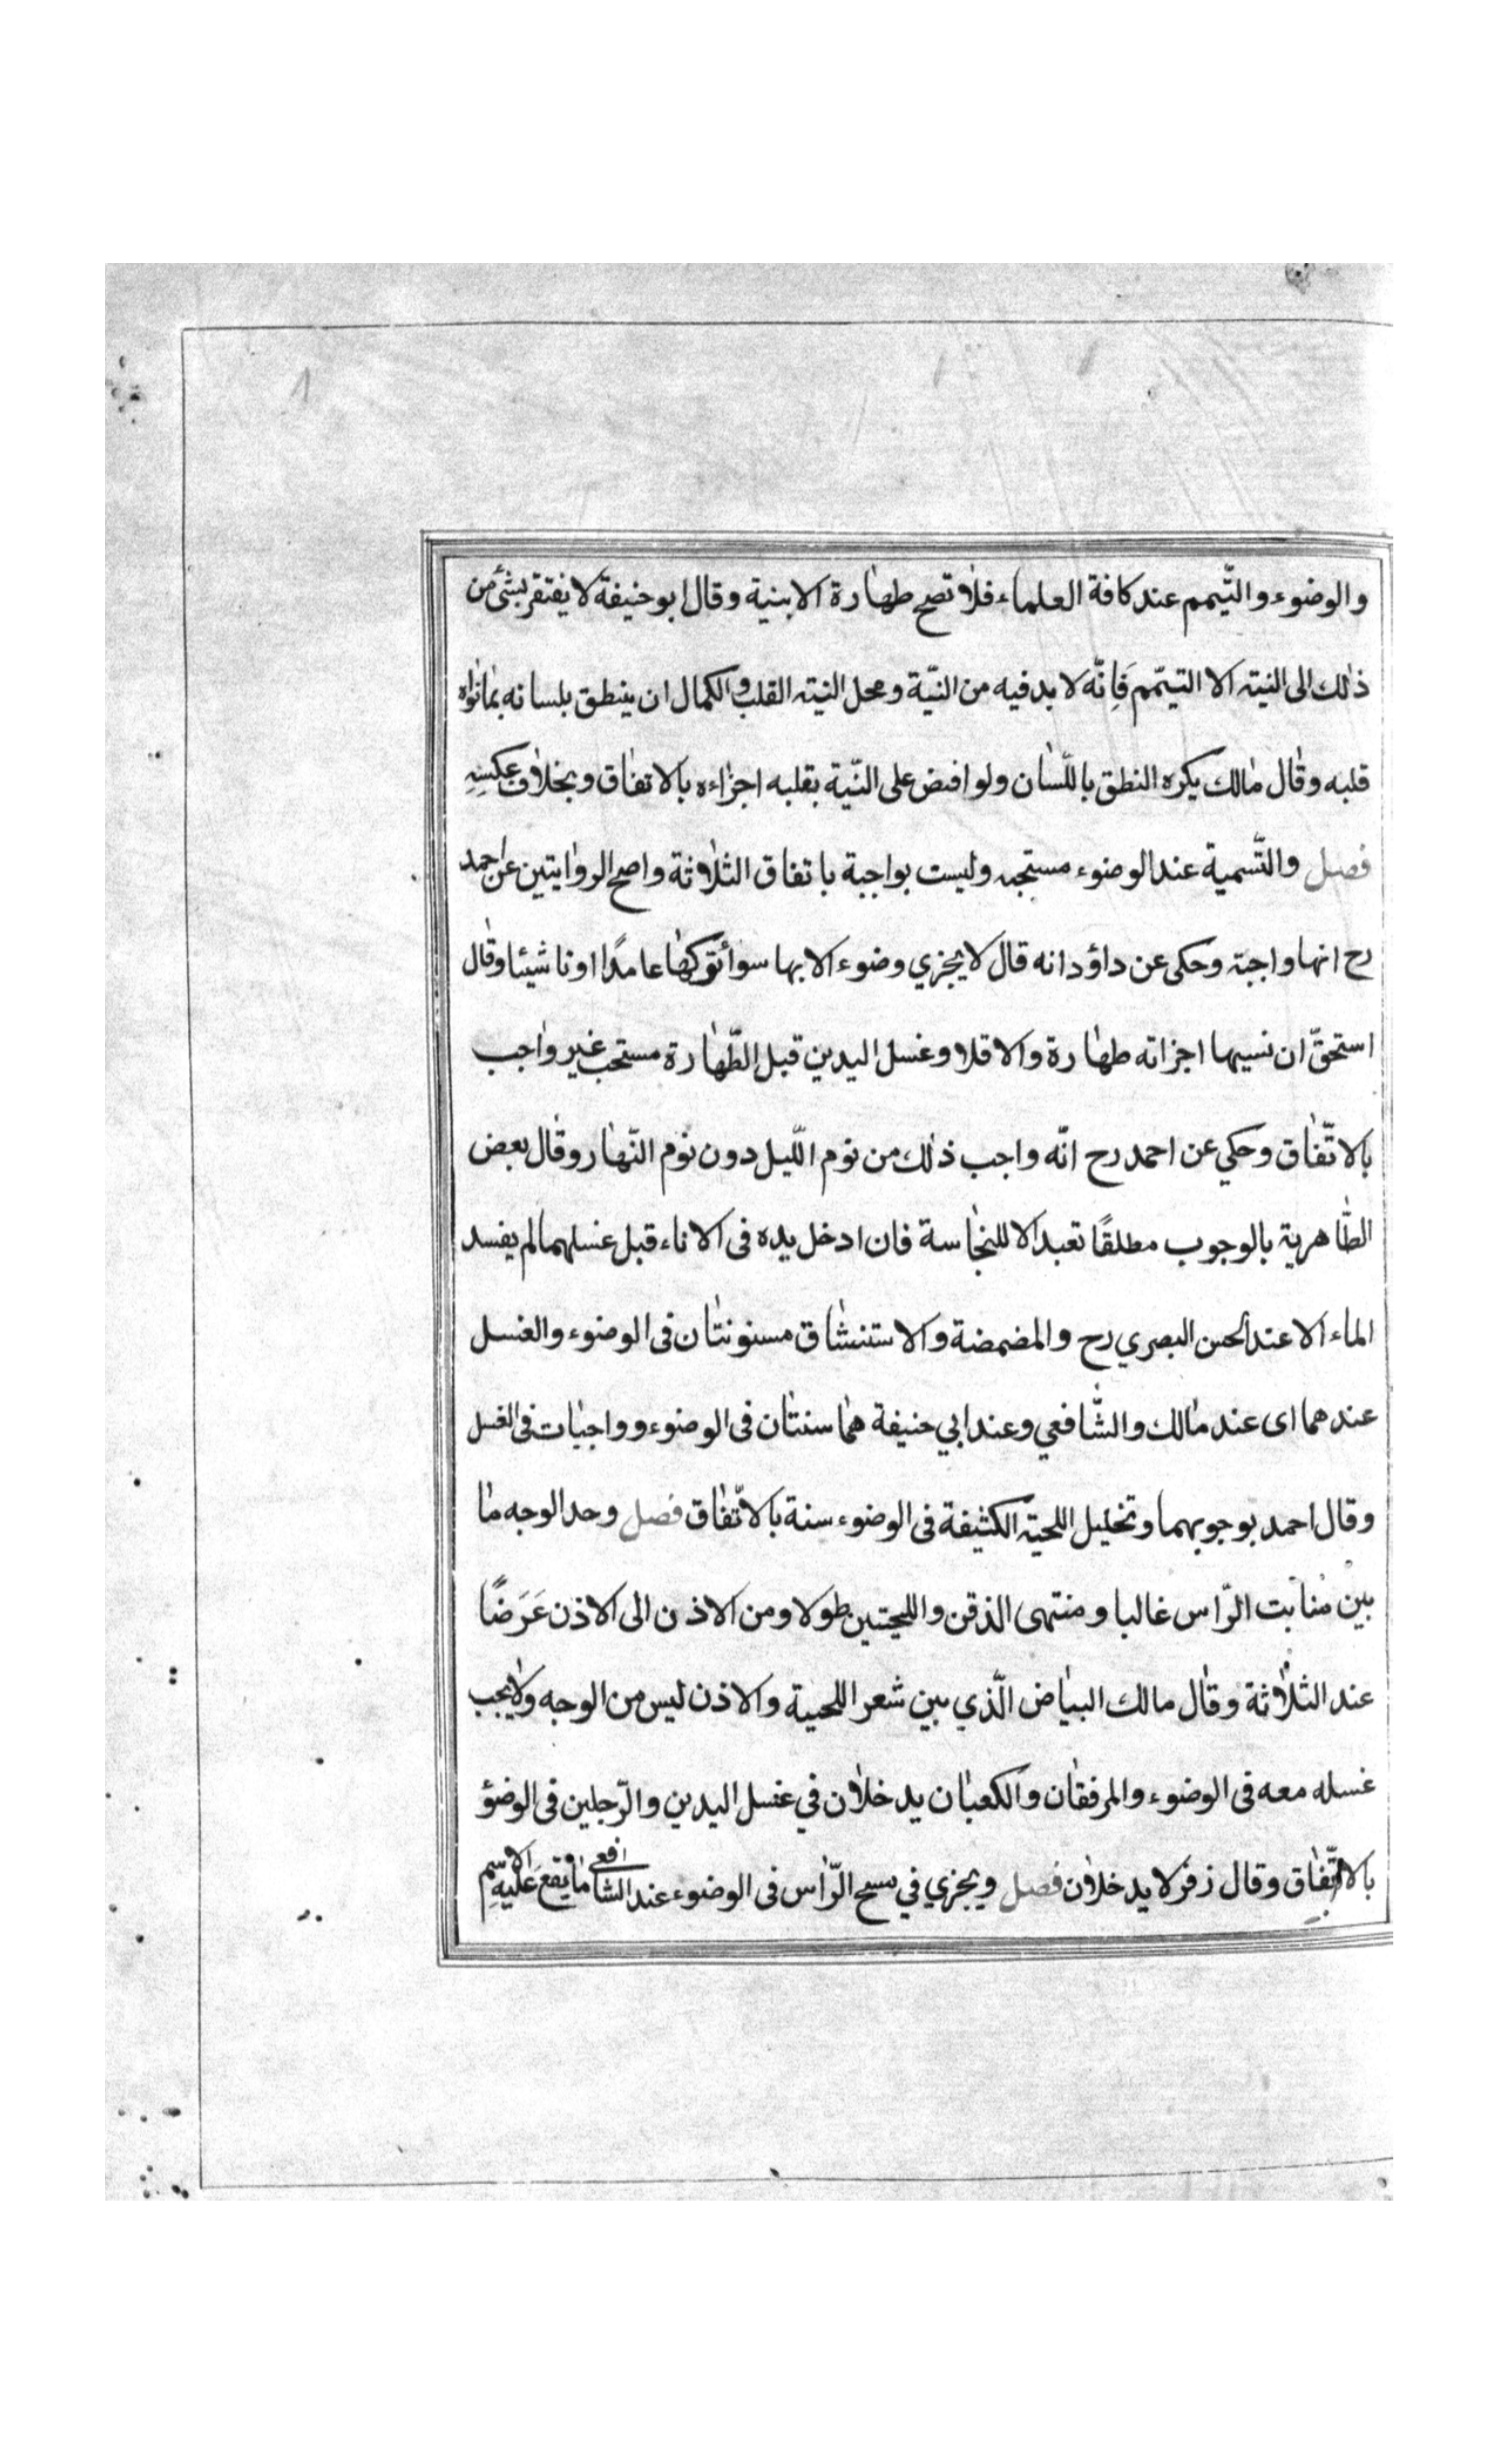 والوضوء والتّيمم عند كافة العلماء فلا تصح طهارة الا بنية وقال ابو حنيفة لا يفتقر بشئ من
ذلك الى النية الا التيمّم فَاِنّه لا بد فيه من النيّة ومحل النية القلب والكمال ان ينطق بلسانه بما نواه
قلبه وقال مالك يكره النطق باللّسان ولو افتض على النّية بقلبه اجزاءه بالاتفاق وبخلاف عكسِهِ
فصل والتّسمية عند الوضوء مستحبه وليست بواجبة باتفاق الثلاثة واصح الروايتين عن احمد
رح انها واجبة وحكى عن داؤد انه قال لا يجزي وضوء الا بها سواً تركها عامدًا او ناشيئا وقال
استحقّ ان نسيها اجزاته طهارة والا فلا وغسل اليدين قبل الطّهارة مستحب غير واجب
بالاتّفاق وحكي عن احمد رح انّه واجب ذلك من نوم اللّيل دون نوم النّهار وقال بعض
الظّاهرية بالوجوب مطلقًا تعبد الا للنجاسة فان ادخل يده فى الاناء قبل غسلهما لم يفسد
الماء الا عند الحسن البصري رح والمضمضة والاستنشاق مسنونتان فى الوضوء والغسل
عندهما اى عند مالك والشّافعي وعند ابي حنيفة هما سنتان فى الوضوء وواجبات فى الغسل
وقال احمد بوجوبهما وتخليل اللحية الكثيفة فى الوضوء سنة بالاتّفاق فصل وحد الوجه ما
بين منابت الرّاس غالبا ومنتهى الذقن واللحيتين طولا ومن الاذن الى الاذن عَرَضًا
عند الثلاثة وقال مالك البياض الّذي بين شعر اللحية والاذن ليس من الوجه ولا يجب
غسله معه فى الوضوء والمرفقان والكعبان يدخلان في غسل اليدين والرّجلين فى الوضؤ
بالاتّفاق وقال زفر لا يدخلان فصل ويجزي في مسح الرّاس فى الوضوء عند الشافعي ما يقع عَليهِ الاسم